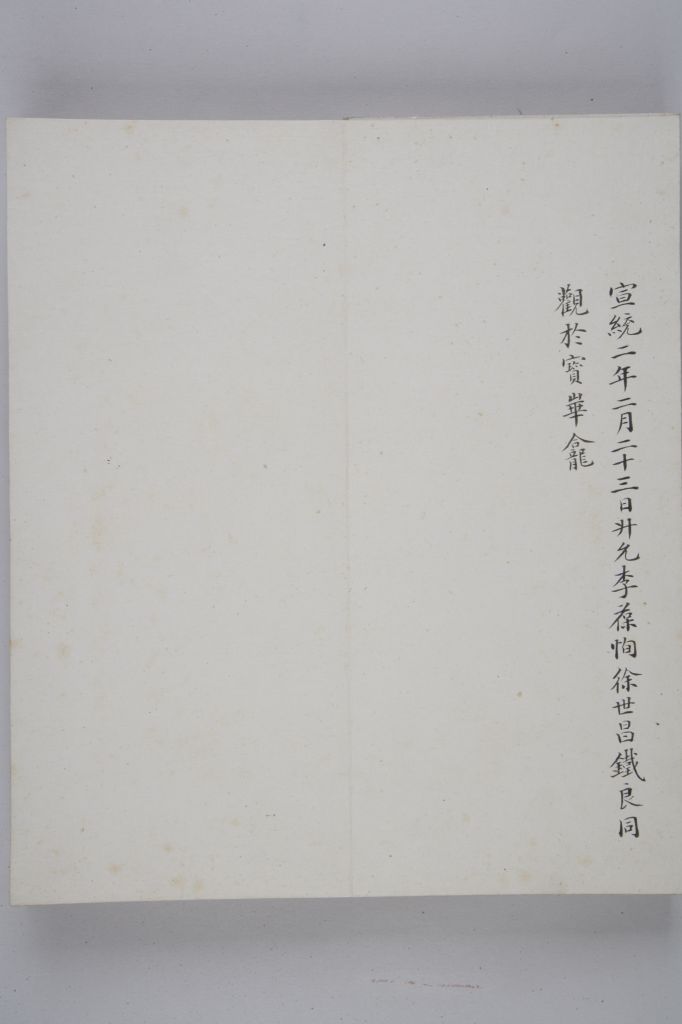 宣統二年二月二十三日升允李葆恂徐世昌鐵良同
觀於寶華龕